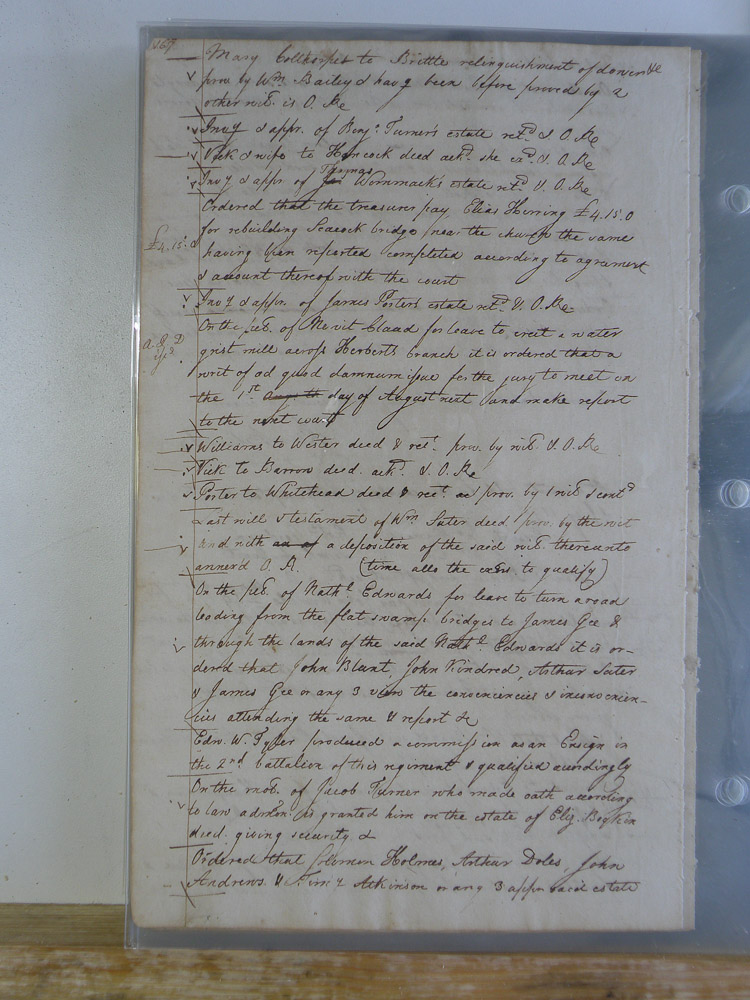 167
Mary Colthorpes to Brittle relinquishment of dower &c
prov. by Wm. Bailey & havg been before proved by 2
other wits. is O. Re
Invy & appr. of Benja. Turner's estate retd. & O. Re
Vick & wife to Hancock deed ackd. she exd. &. O. Re
Thomas
Invy & appr. of Jas. Wommack's estate retd. &. O. Re
Ordered that the treasurer pay Elias Herring £4.15.0
for rebuilding Seacock bridge near the church the same
£4.15.0
having been reported completed according to agreement
& account thereof with the court
Invy & appr. of James Porter's estate retd. &. O. Re
On the pet. of Merit Claud for leave to erect a water
grist mill across Herbert's branch it is ordered that a
writ of ad quod damnum issue for the jury to meet on
the 1st day of August next and make report
to the next court
Williams to Wester deed & rect. prov. by wits. &. O. Re
Vick to Barrow deed ackd. &. O. Re
Porter to Whitehead deed & rect. prov. by 1 wit. & contd
Last will & testament of Wm. Sater decd prov. by the wit
and with a deposition of the said wit. thereunto
annexed O. R. (time allo the exors to qualify)
On the pet. of Nathl. Edwards for leave to turn a road
leading from the flat swamp bridges to James Gee &
through the lands of the said Nathl. Edwards it is or-
dered that John Blunt, John Kindred, Arthur Sater
& James Gee or any 3 view the conveniencies & inconvenien-
cies attending the same & report &c
Edw. W. Tyler produced a commission as an Ensign in
the 2nd battalion of this regiment & qualified accordingly
On the mot. of Jacob Turner who made oath according
to law admon. is granted him on the estate of Eliz. Boykin
decd. giving security &
Ordered that Solomon Holmes, Arthur Doles, John
Andrews & Atkinson or any 3 appr said estate